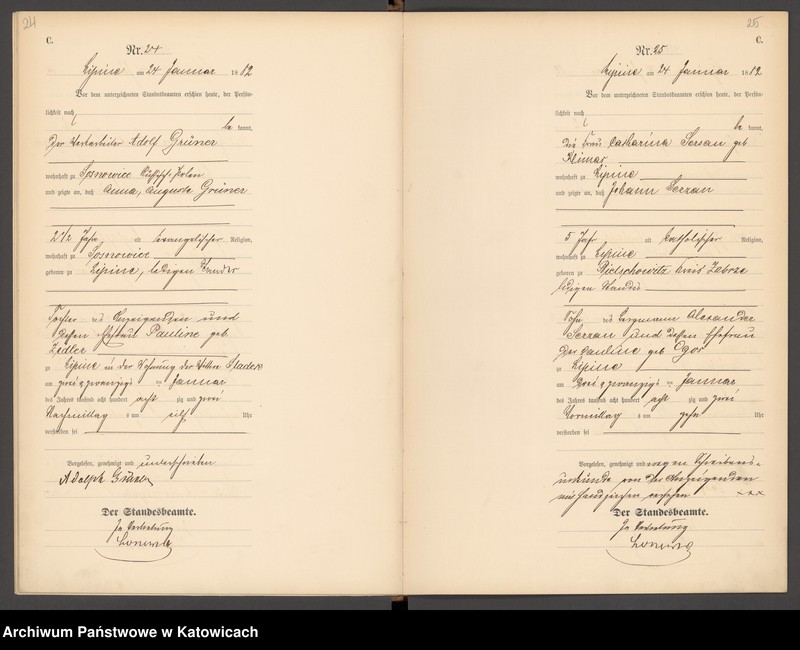 24
C.
Nr. 24
Lipine am 24 Januar 1882
Vor dem unterzeichneten Standesbeamten erschien heute, der Persön-
lichkeit nach
be kannt,
Der Adolf Grüner
wohnhaft zu Sosnowice Polen
und zeigte an, daß Anna, Auguste Grüner
2 1/2 Jahr alt evangelischer Religion,
wohnhaft zu Sosnowice
geboren zu Lipine, ledigen Standes
Tochter des Anzeigenden und
dessen Ehefrau Pauline geb.
Zedler
zu Lipine in der Wohnung der
am zwei zwanzigs ten Januar
des Jahres tausend acht hundert acht zig und zwei
Nachmittag s um eilf Uhr
verstorben sei
Vorgelesen, genehmigt und unterschrieben
Adolph Grüner
Der Standesbeamte.
In Vertretung
25
C.
Nr. 25
Lipine am 24 Januar 1882
Vor dem unterzeichneten Standesbeamten erschien heute, der Persön-
lichkeit nach
be kannt,
die Frau Catharina Sersan geb
Klimas
wohnhaft zu Lipine
und zeigte an, daß Johann Serzan
5 Jahr alt katholischer Religion,
wohnhaft zu Lipine
geboren zu Bielschowitz Kreis Zabrze
ledigen Standes
Sohn des Bergmann Alexander
Serzan und dessen Ehefrau
Pauline geb
zu Lipine
am zwanzigs ten Januar
des Jahres tausend acht hundert acht zig und zwei
Vormittag s um zehn Uhr
verstorben sei
Vorgelesen, genehmigt und wegen Schreibens-
unkunde von der Anzeigenden
mit Handzeichen versehen xxx
Der Standesbeamte.
In Vertretung
Archiwum Państwowe w Katowicach